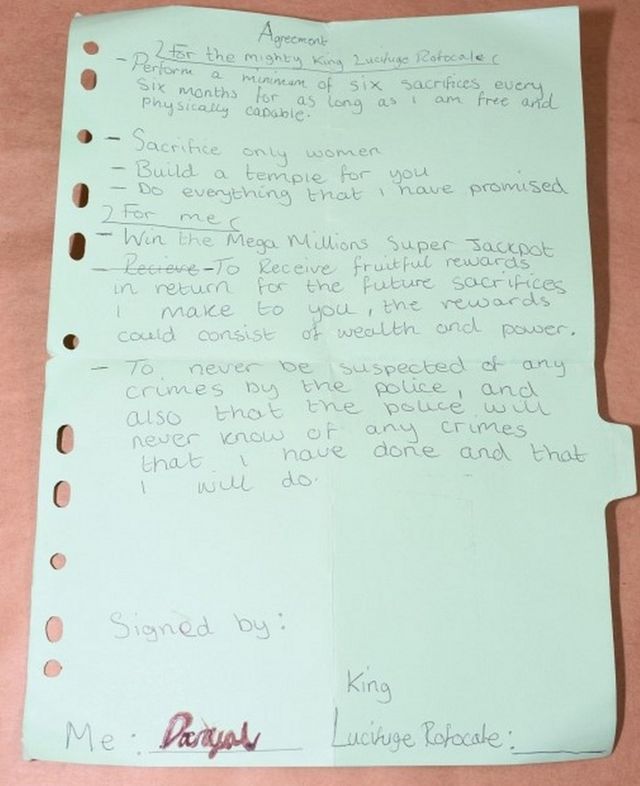 Agreement
For the mighty King Lucifuge Rofocale
- Perform a minimum of six sacrifices every
six months for as long as i am free and
physically capable.
- Sacrifice only women
- Build a temple for you
- Do everything that i have promised
For me
- Win the Mega Millions Super Jackpot
- Recieve - To Receive fruitful rewards
in return for the future sacrifices
i make to you, the rewards
could consist of wealth and power.
- To never be suspected of any
crimes by the police, and
also that the police will
never know of any crimes
that i have done and that
i will do.
Signed by:
King
Me:
Lucifuge Rofocale: